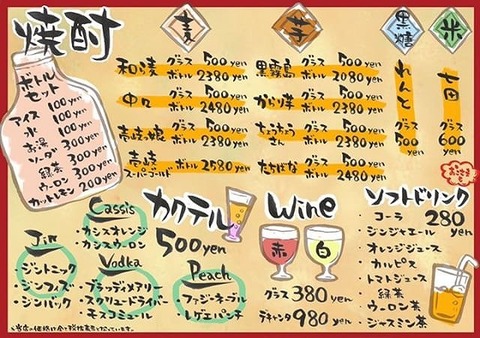 焼酎
ボトル
セット
アイス 100yen
水 100yen
お湯 100yen
ソーダ 300yen
緑茶 300yen
ウーロン 300yen
カットレモン 200yen
麦
和ら麦 グラス 500yen
ボトル 2380yen
中々 グラス 500yen
ボトル 2480yen
壱岐っ娘 グラス 500yen
ボトル 2380yen
壱岐
スーパーゴールド ボトル 2580yen
芋
黒霧島 グラス 500yen
ボトル 2080yen
からり芋 グラス 500yen
ボトル 2380yen
ちょうちょう
さん グラス 500yen
ボトル 2380yen
たちばな グラス 500yen
ボトル 2480yen
黒糖
れんと
グラス
500
yen
米
七田
グラス
600
yen
カクテル
500yen
Cassis
・カシスオレンジ
・カシスウーロン
Jin
・ジントニック
・ジンフィズ
・ジンバック
Vodka
・ブラッディメアリー
・スクリュードライバー
・モスコミュール
Peach
・ファジーネーブル
・レゲエパンチ
Wine
赤
白
グラス 380yen
デキャンタ 980yen
ソフトドリンク
280
yen
・コーラ
・ジンジャエール
・オレンジジュース
・カルピス
・トマトジュース
・緑茶
・ウーロン茶
・ジャスミン茶
※当店の価格は全て税抜表示となっています。